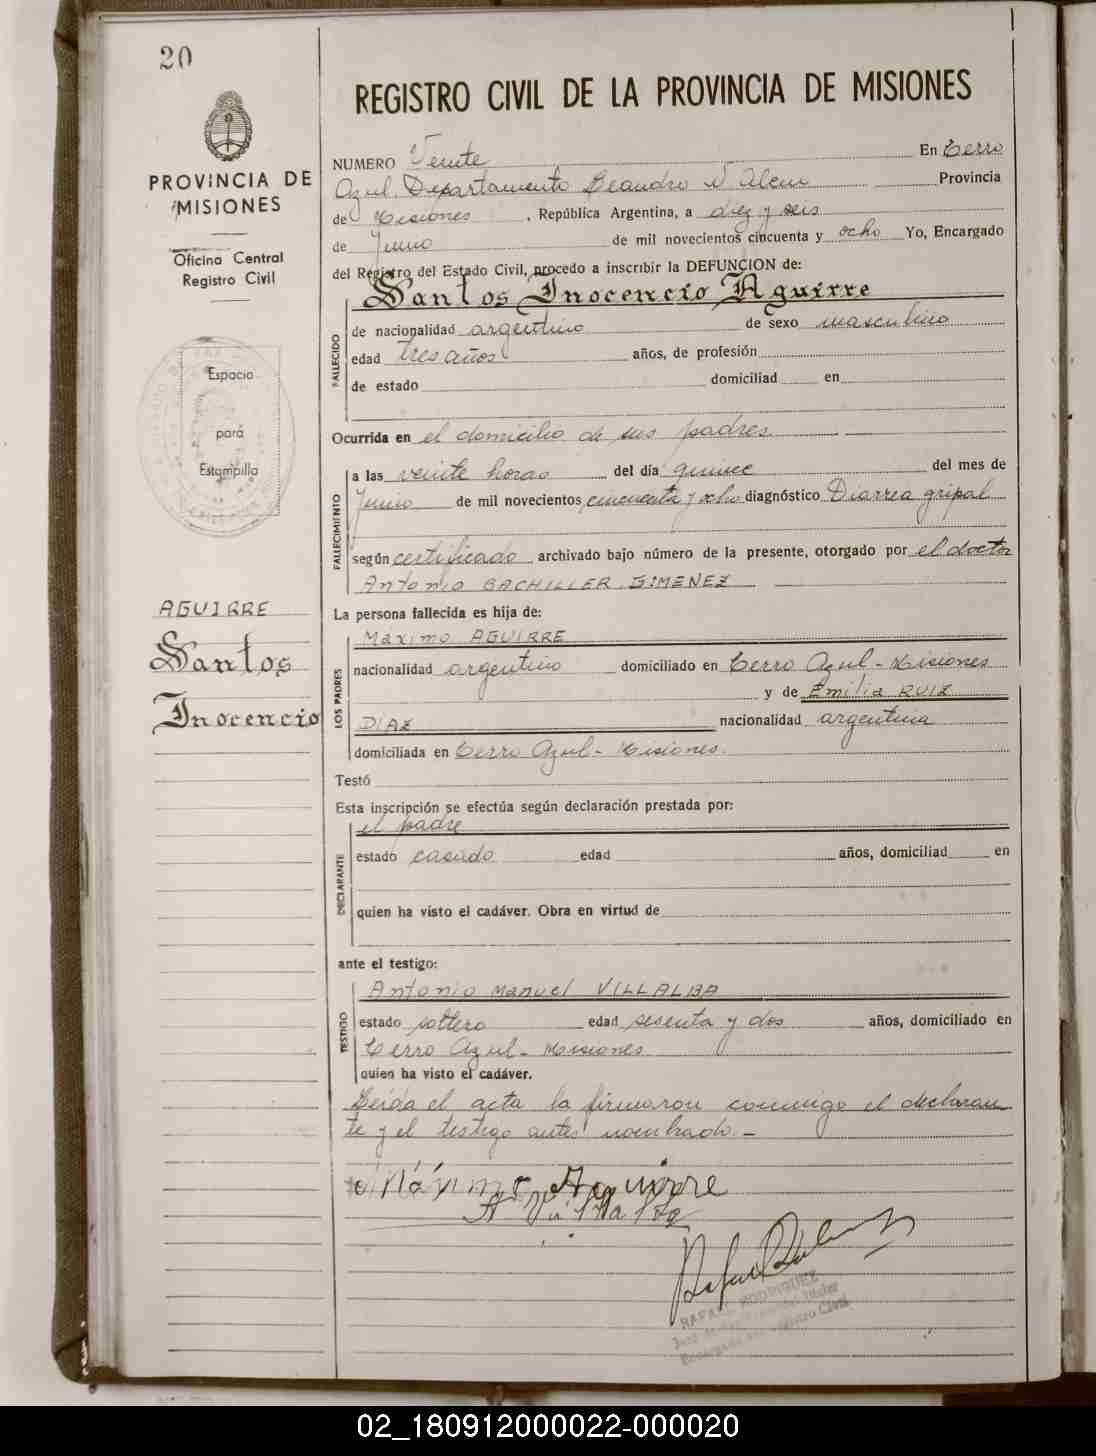 20
PROVINCIA DE
MISIONES
Oficina Central
Registro Civil
Espacio
para
Estampilla
AGUIRRE
Santos
Inocencio
REGISTRO CIVIL DE LA PROVINCIA DE MISIONES
NUMERO Veinte En Cerro
Azul, Departamento Leandro N Alem Provincia
de Misiones, República Argentina, a diez y seis
de Junio de mil novecientos cincuenta y ocho Yo, Encargado
del Registro del Estado Civil, procedo a inscribir la DEFUNCION de:
Santos Inocencio Aguirre
FALLECIDO
de nacionalidad argentino de sexo masculino
edad tres años años, de profesión
de estado domiciliad en
Ocurrida en el domicilio de sus padres
FALLECIMIENTO
a las veinte horas del día quince del mes de
Junio de mil novecientos cincuenta y ocho diagnóstico Diarrea gripal
según certificado archivado bajo número de la presente, otorgado por el doctor
Antonio BACHILLER GIMENEZ
La persona fallecida es hija de:
LOS PADRES
Maximo AGUIRRE
nacionalidad argentino domiciliado en Cerro Azul - Misiones
y de Emilia RUIZ
DIAZ nacionalidad argentina
domiciliada en Cerro Azul - Misiones.
Testó
Esta inscripción se efectúa según declaración prestada por:
DECLARANTE
el padre
estado casado edad años, domiciliad en
quien ha visto el cadáver. Obra en virtud de
ante el testigo:
TESTIGO
Antonio Manuel VILLALBA
estado soltero edad sesenta y dos años, domiciliado en
Cerro Azul - Misiones
quien ha visto el cadáver.
Leída el acta la firmaron conmigo el declaran
te y el testigo antes nombrado. -
Máximo Aguirre
A Villalba
RAFAEL RODRIGUEZ
Registro Civil
02_180912000022-000020